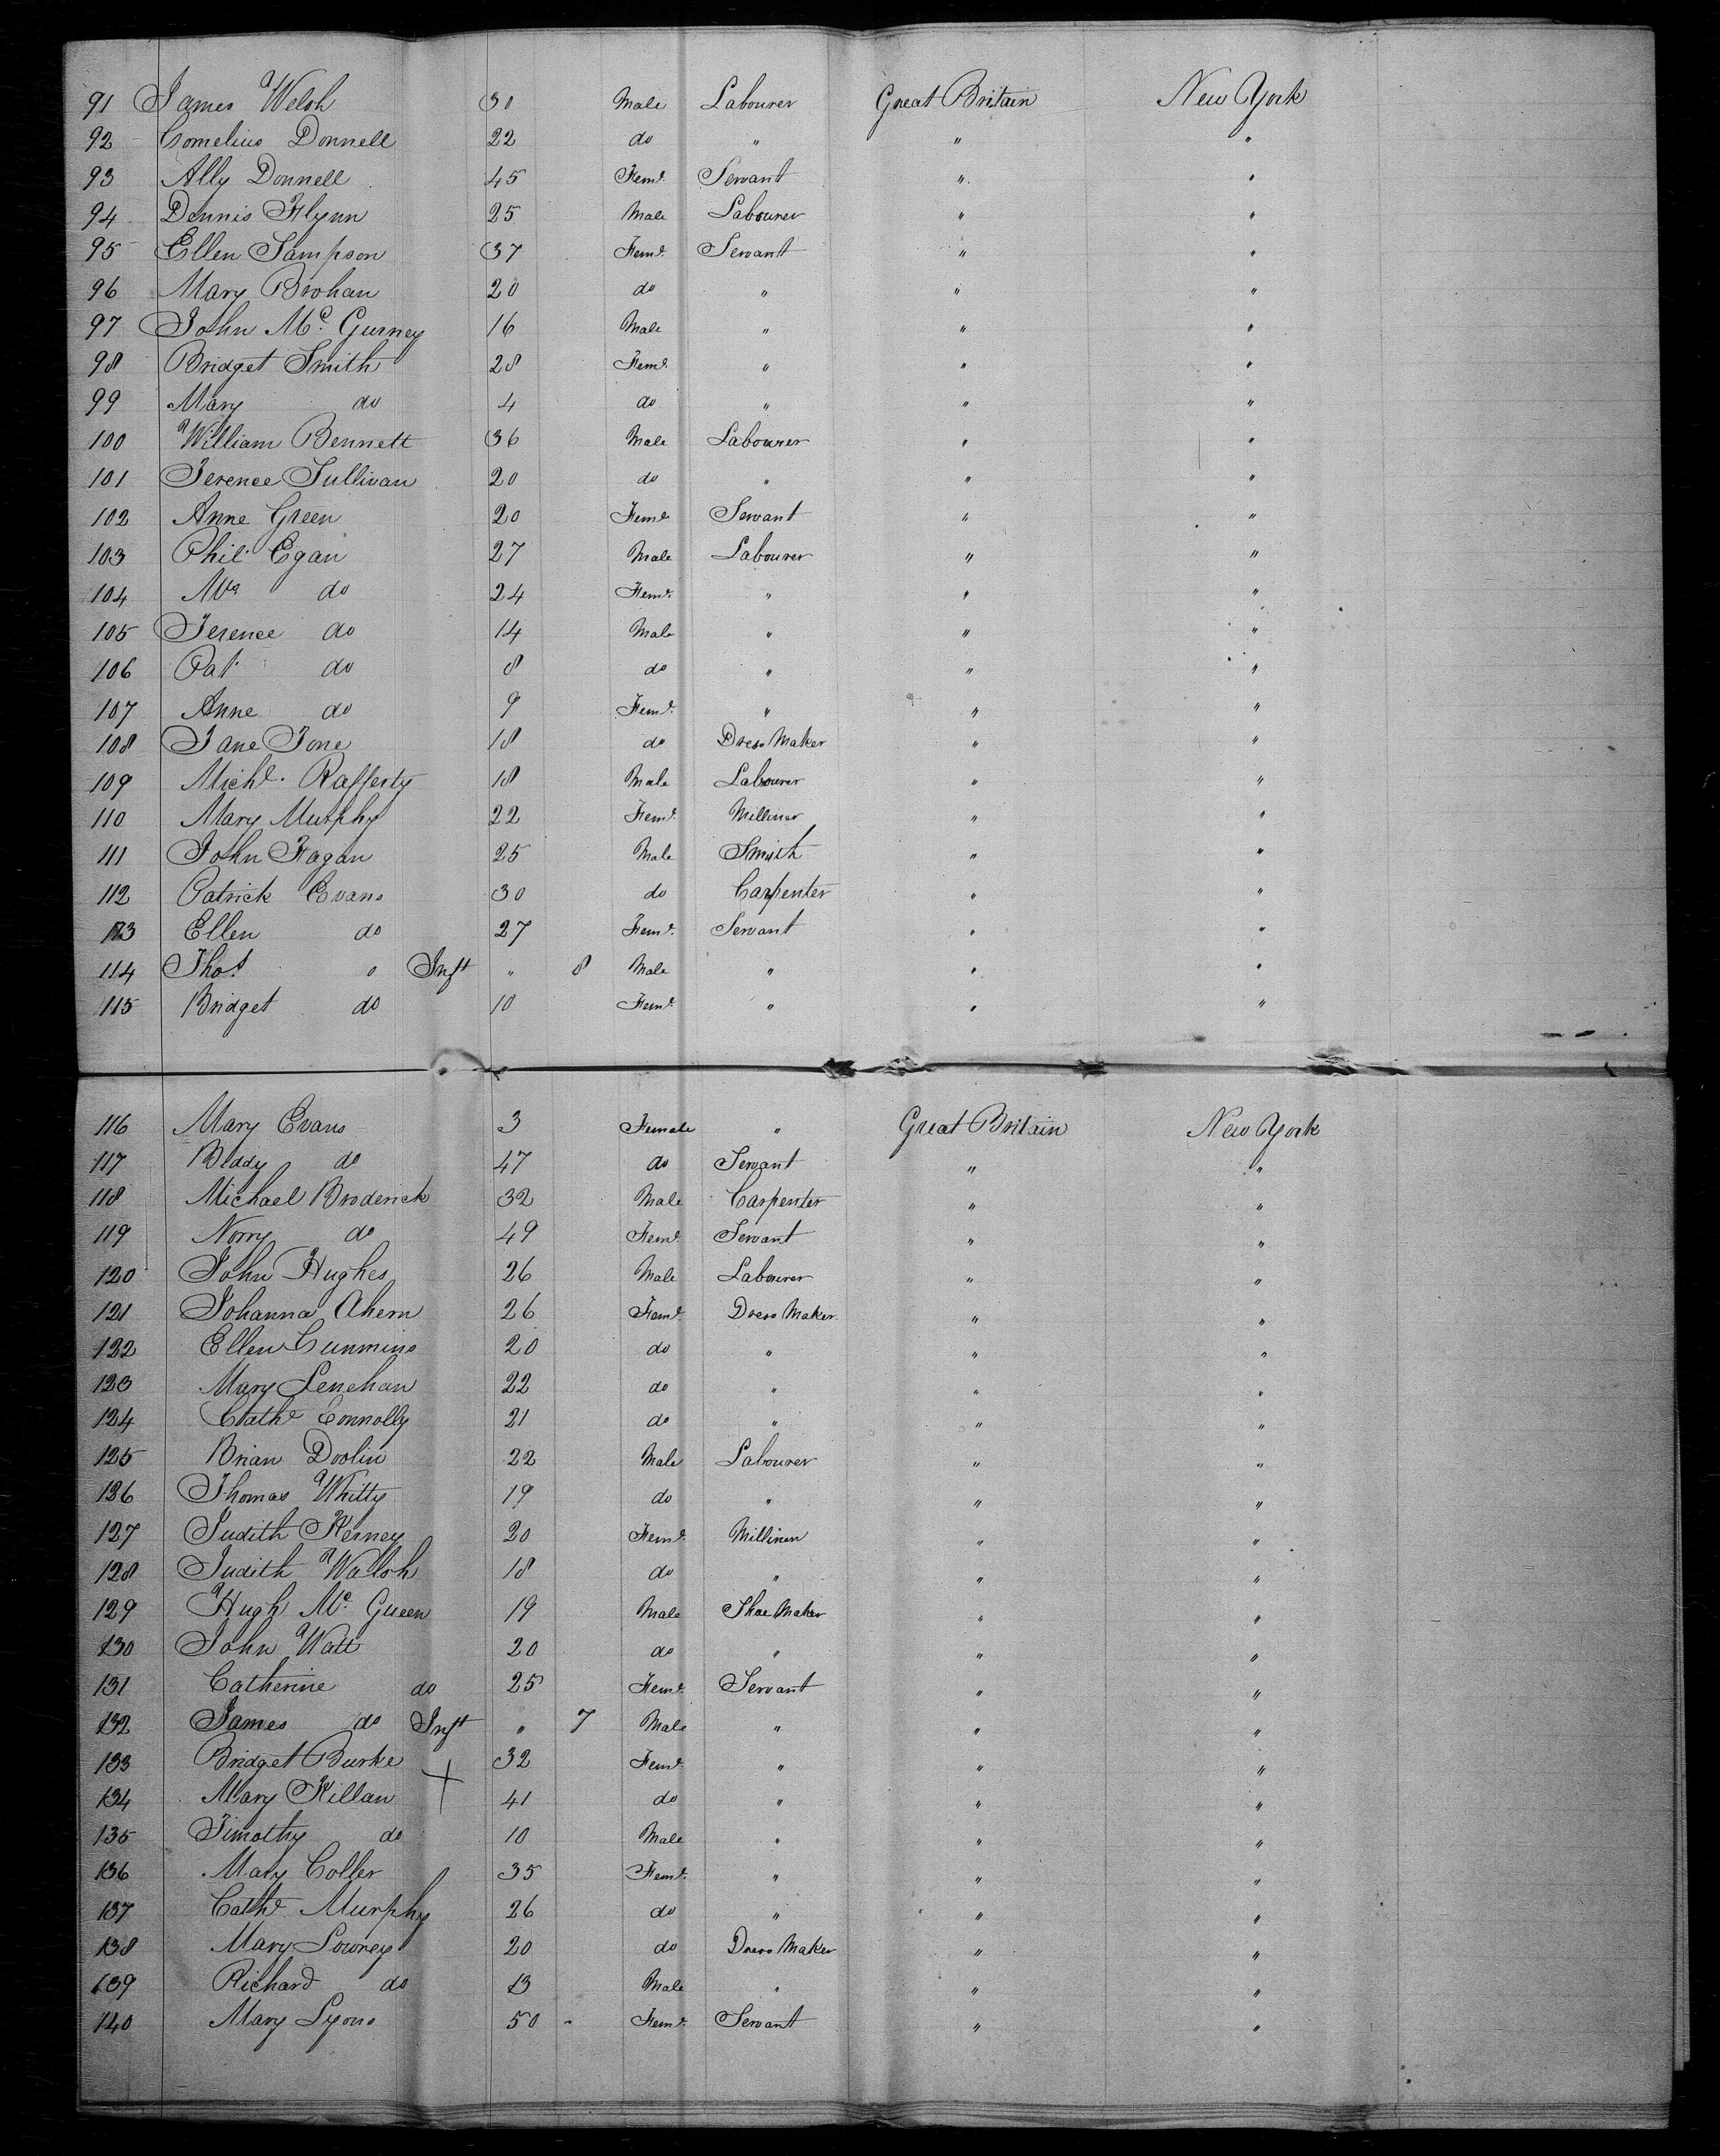 91 James Welsh 30 Male Labourer Great Britain New York
92 Cornelius Donnell 22 do " " "
93 Ally Donnell 45 Feme. Servant " "
94 Dennis Flynn 25 Male Labourer " "
95 Ellen Sampson 37 Feme. Servant " "
96 Mary Brohan 20 do " " "
97 John Mc. Gurney 16 Male " " "
98 Bridget Smith 28 Feme. " " "
99 Mary do 4 do " " "
100 William Bennett 36 Male Labourer " "
101 Terence Sullivan 20 do " " "
102 Anne Green 20 Feme. Servant " "
103 Phil. Egan 27 Male Labourer " "
104 Mrs do 24 Feme. " " "
105 Terence do 14 Male " " "
106 Pat. do 8 do " " "
107 Anne do 9 Feme. " " "
108 Jane Tone 18 do Dress Maker " "
109 Michl. Rafferty 18 Male Labourer " "
110 Mary Murphy 22 Feme. Milliner " "
111 John Fagan 25 Male Smith " "
112 Patrick Evans 30 do Carpenter " "
113 Ellen do 27 Feme. Servant " "
114 Thos. o Inft " 8 Male " " "
115 Bridget do 10 Feme. " " "
116 Mary Evans 3 Female " Great Britain New York
117 Biddy do 47 do Servant " "
118 Michael Broderick 32 Male Carpenter " "
119 Norry do 49 Feme. Servant " "
120 John Hughes 26 Male Labourer " "
121 Johanna Ahern 26 Feme. Dress Maker " "
122 Ellen Cummins 20 do " " "
123 Mary Lenehan 22 do " " "
124 Cathe Connolly 21 do " " "
125 Brian Doolin 22 Male Labourer " "
126 Thomas Whitty 19 do " " "
127 Judith Kerney 20 Feme. Milliner " "
128 Judith Walsh 18 do " " "
129 Hugh Mc. Gueen 19 Male Shoe Maker " "
130 John Watt 20 do " " "
131 Catherine do 25 Feme. Servant " "
132 James do Inft " 7 Male " " "
133 Bridget Burke 32 Feme. " " "
134 Mary Killan 41 do " " "
135 Timothy do 10 Male " " "
136 Mary Coller 35 Feme. " " "
137 Cathe Murphy 26 do " " "
138 Mary Lowrey 20 do Dress Maker " "
139 Richard do 13 Male " " "
140 Mary Lyons 50 Feme. Servant " "